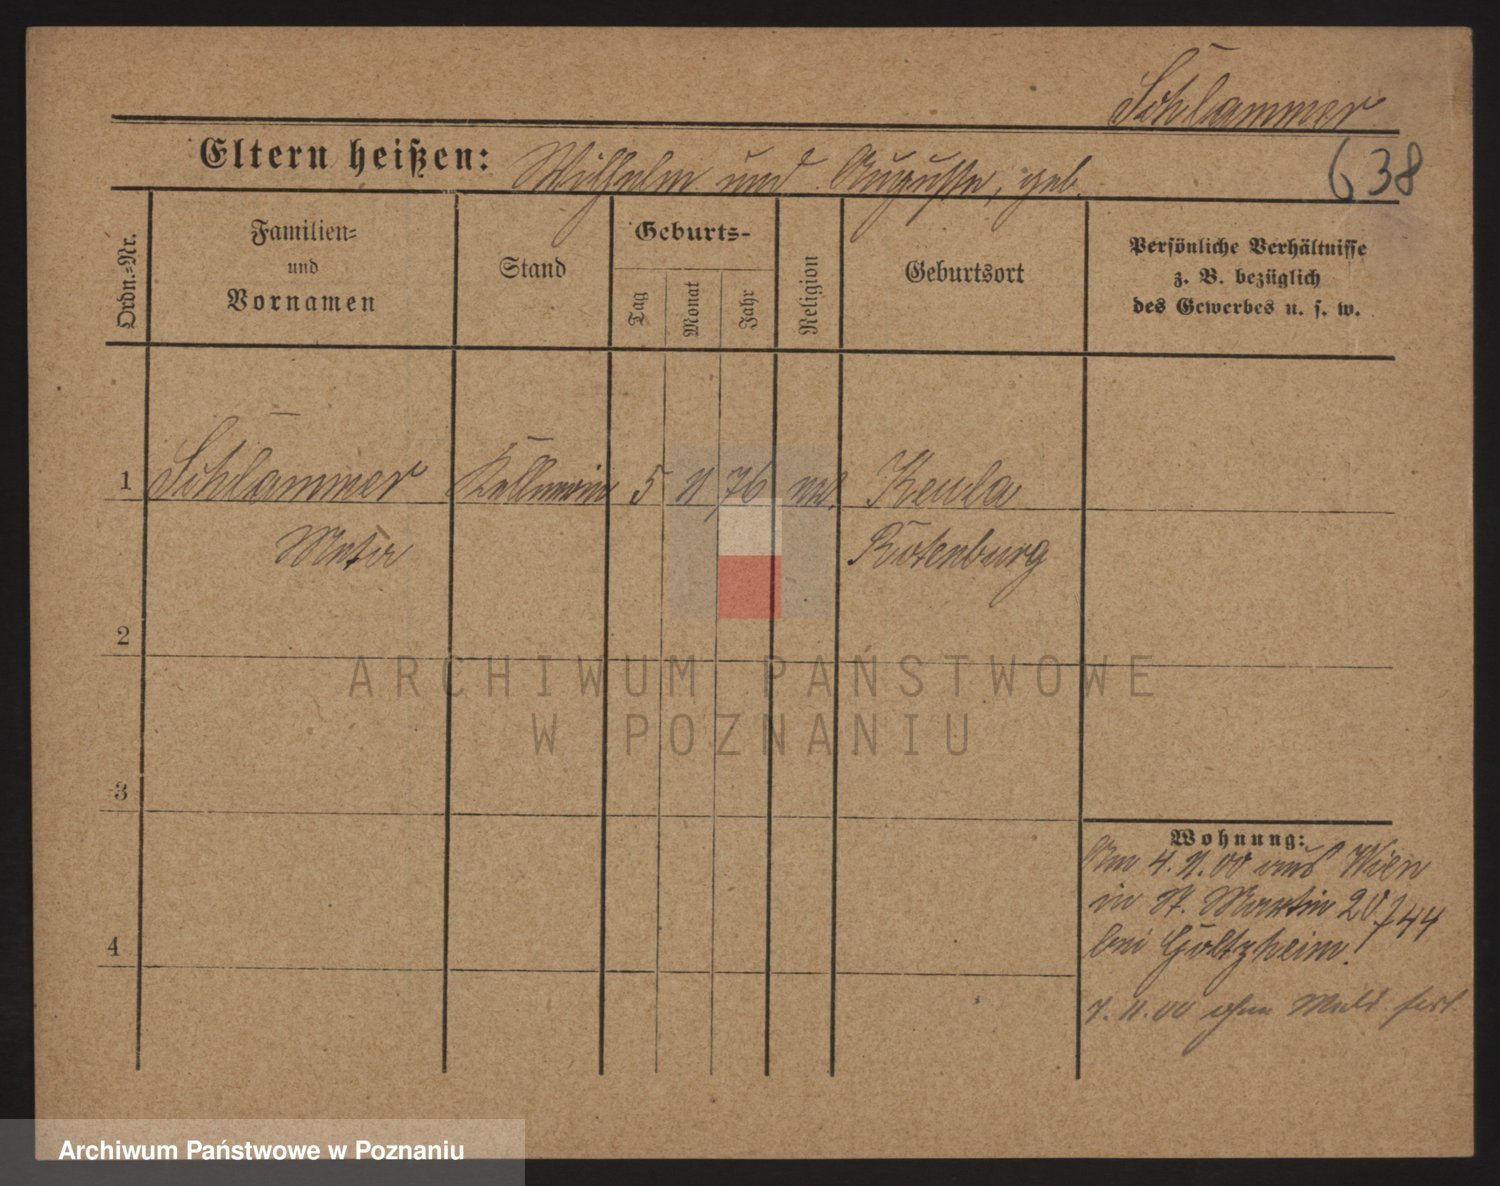 Schlammer
638
Eltern heißen: Wilhelm und Auguste, geb.
Ordn.=Nr.
Familien=
und
Vornamen
Stand
Geburts=
Tag
Monat
Jahr
Religion
Geburtsort
Persönliche Verhältnisse
z. B. bezüglich
des Gewerbes u. s. w.
1 Schlammer Kellnerin 5 11 76 Keula
Meta Rotenburg
2
3
4
Wohnung:
Am 4.11.00 aus Wien
in St. Martin 20
bei Goltzheim.
744
7.11.00 ohne Meld. fort
ARCHIWUM PAŃSTWOWE
W POZNANIU
Archiwum Państwowe w Poznaniu